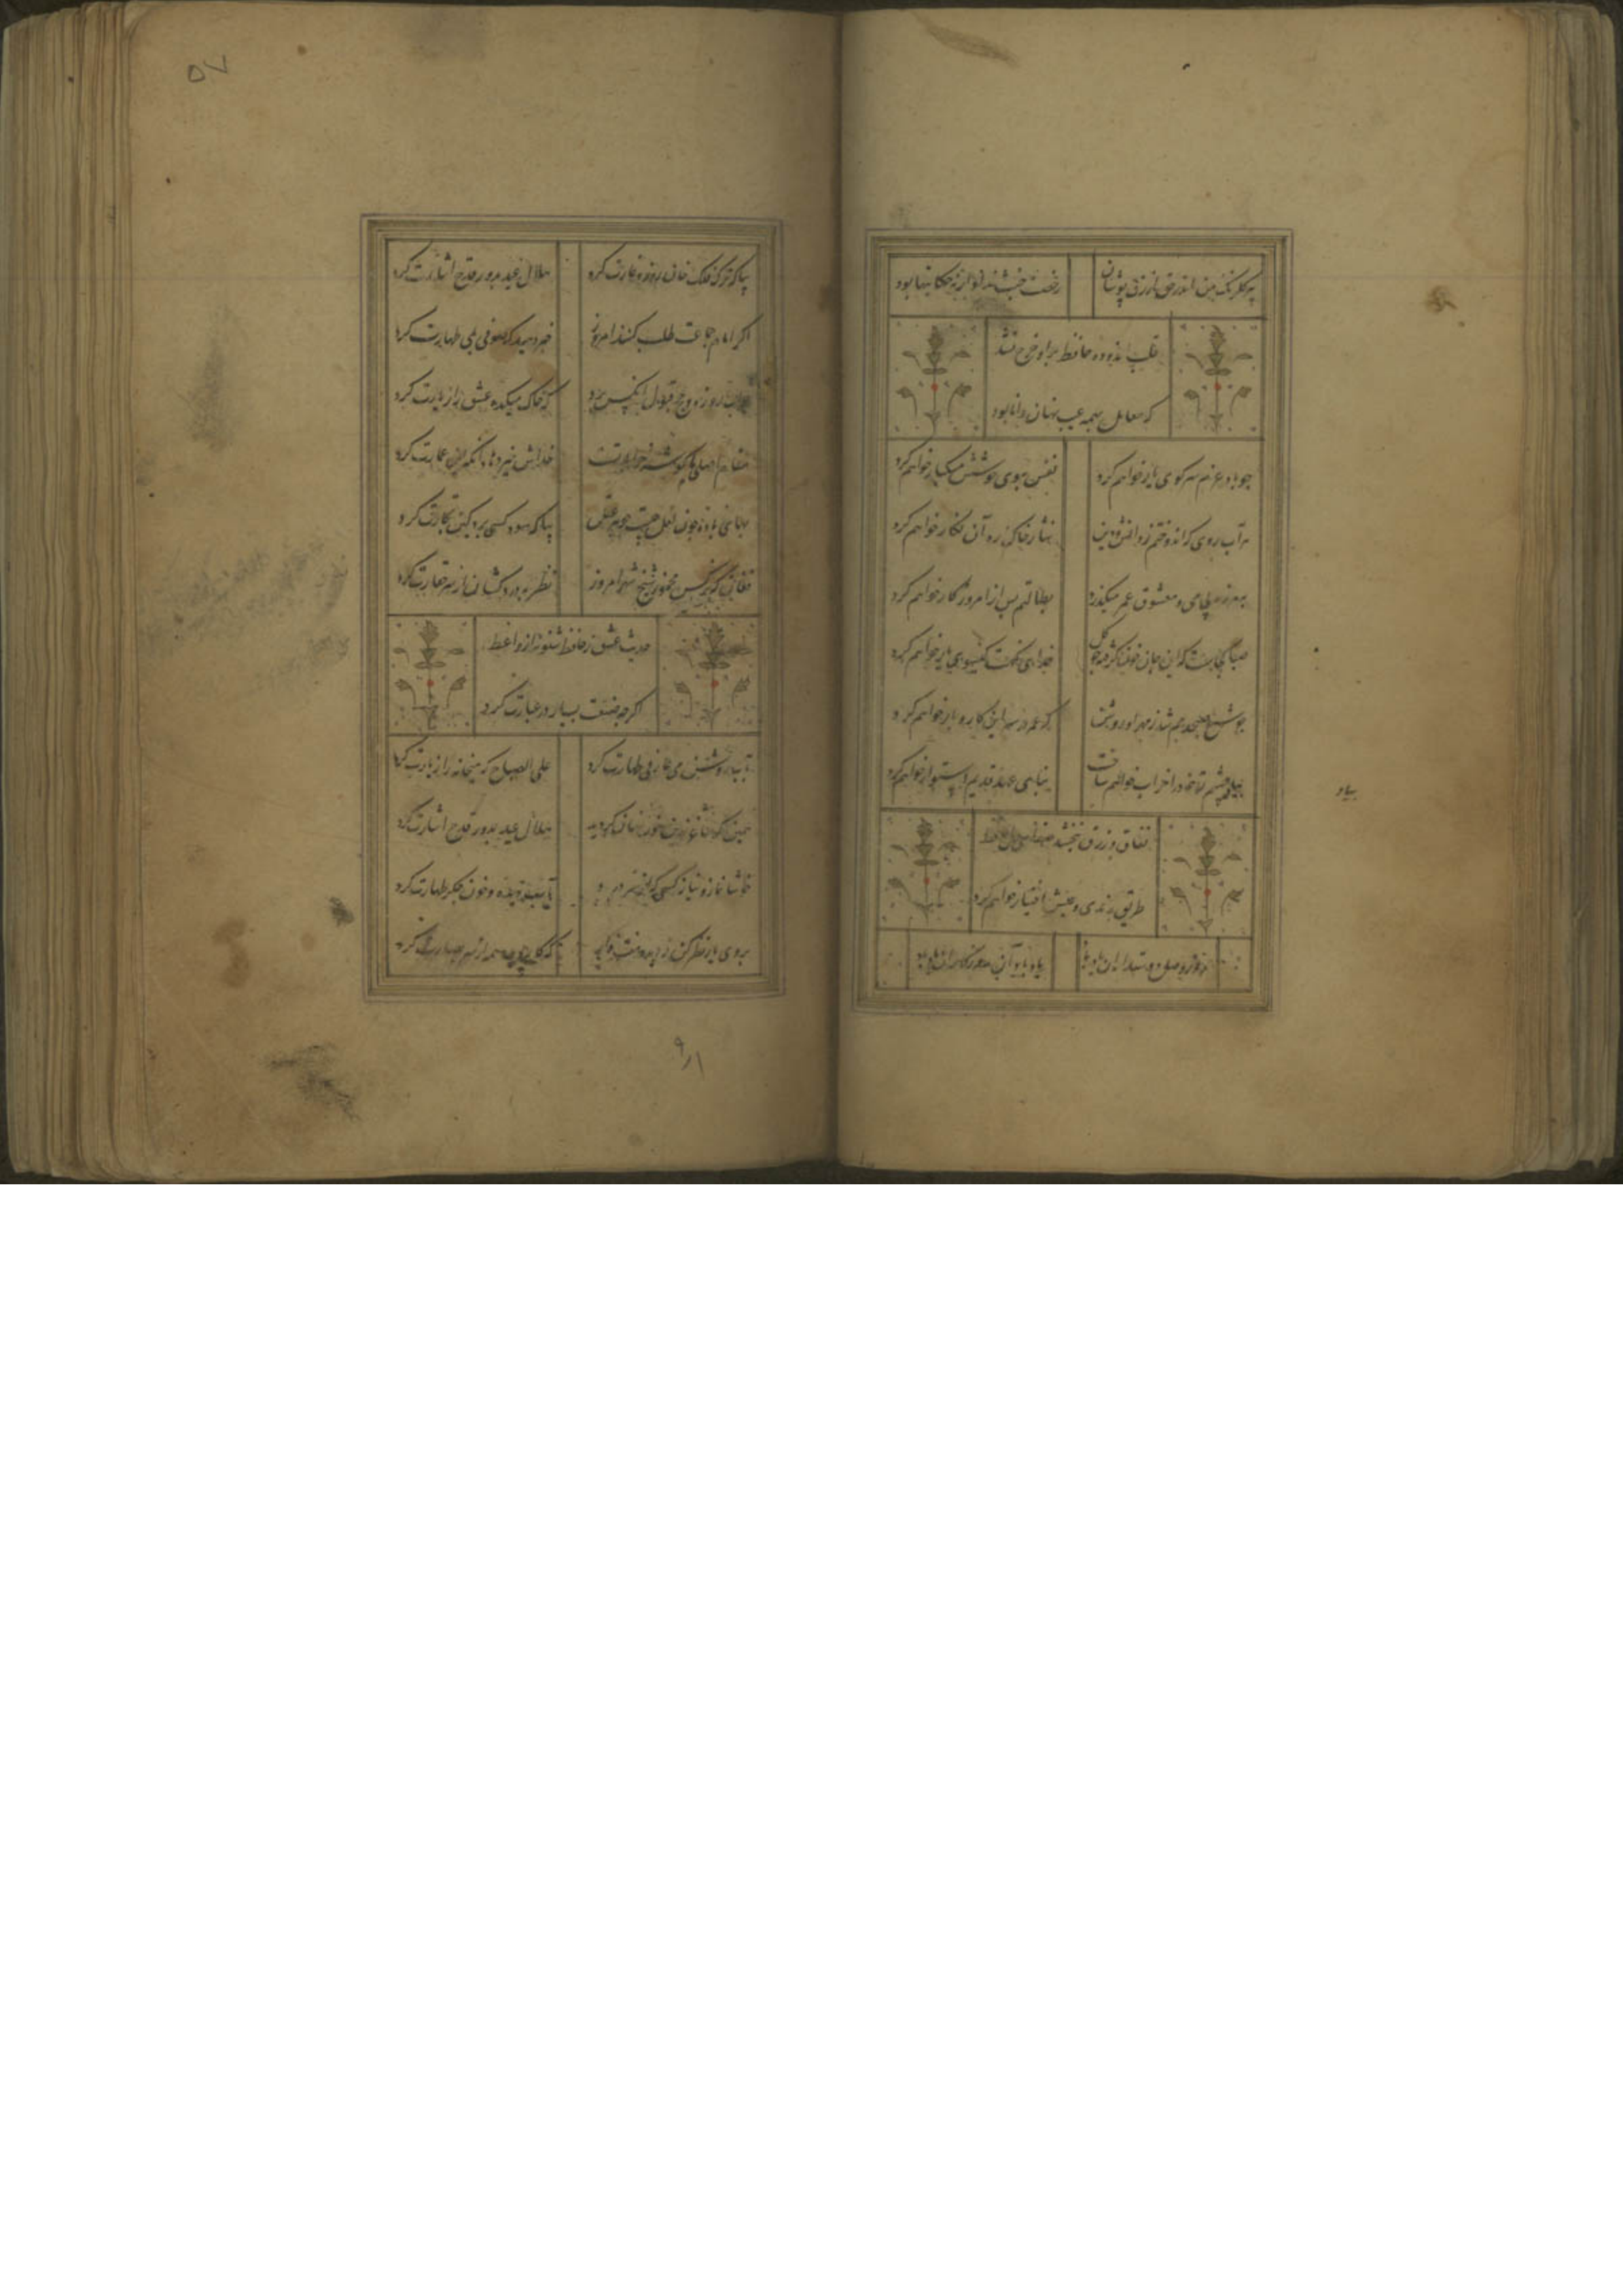 پیر گلرنگ من اندر حق ازرق پوشان
رخصت خبث نداد ار نه حکایتها بود
قلب اندوده حافظ بر او خرج نشد
که معامل بهمه عیب نهان دانا بود
چو باد عزم سر کوی یار خواهم کرد
نفس ببوی خوشش مشکبار خواهم کرد
هر آب روی که اندوختم ز دانش و دین
نثار خاک ره آن نگار خواهم کرد
بهرزه بی می و معشوق عمر میگذرد
بطالتم بس از امروز کار خواهم کرد
صبا کجاست که این جان خون گرفته چو گل
فدای نکهت گیسوی یار خواهم کرد
چو شمع صبحدمم شد ز مهر او روشن
که عمر در سر این کار و بار خواهم کرد
بیاد چشم تو خود را خراب خواهم ساخت
بنای عهد قدیم استوار خواهم کرد
نفاق و زرق نبخشد صفای دل حافظ
طریق رندی و عشق اختیار خواهم کرد
روز وصل دوستداران یاد باد
یاد باد آن روزگاران یاد باد
بیاد
۵۷
بیا که ترک فلک خوان روزه غارت کرد
هلال عید بدور قدح اشارت کرد
اگر امام جماعت طلب کند امروز
خبر دهید که صوفی بمی طهارت کرد
ثواب روزه و حج قبول آنکس برد
که خاک میکده عشق را زیارت کرد
مقام اصلی ما گوشه خراباتست
خداش خیر دهاد آنکه این عمارت کرد
بهای باده چون لعل چیست جوهر عقل
بیا که سود کسی برد کین تجارت کرد
فغان که نرگس مخمور شیخ شهر امروز
نظر بدردکشان از سر حقارت کرد
حدیث عشق ز حافظ شنو نه از واعظ
اگرچه صنعت بسیار در عبارت کرد
بآب روشن می عارفی طهارت کرد
علی الصباح که میخانه را زیارت کرد
همین که ساغر زرین خور نهان گردید
هلال عید بدور قدح اشارت کرد
خوشا نماز و نیاز کسی که از سر درد
بآب دیده و خون جگر طهارت کرد
بروی یار نظر کن ز دیده منت دار
که کار دیده همه از سر بصارت کرد